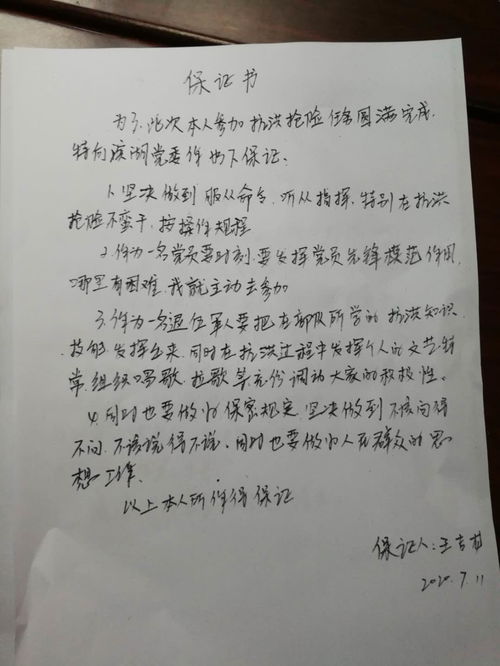 保证书
为了此次本人参加抗洪抢险任务圆满完成,
特向滨湖党委作如下保证.
1.坚决做到服从命令,听从指挥,特别在抗洪
抢险不蛮干,按操作规程
2.作为一名党员要时刻要发挥党员先锋模范作用,
哪里有困难,我就主动去参加
3.作为一名退伍军人要把在部队所学的抗洪知识
技能发挥出来,同时在抗洪过程中发挥个人的文艺特
常,组织唱歌,拉歌等充份调动大家的积极性。
4.同时也要做好保密规定,坚决做到不该问得
不问,不该说得不说、同时也要做好人民群众的思
想工作。
以上本人所作得保证
保证人:王吉
2020.7.11